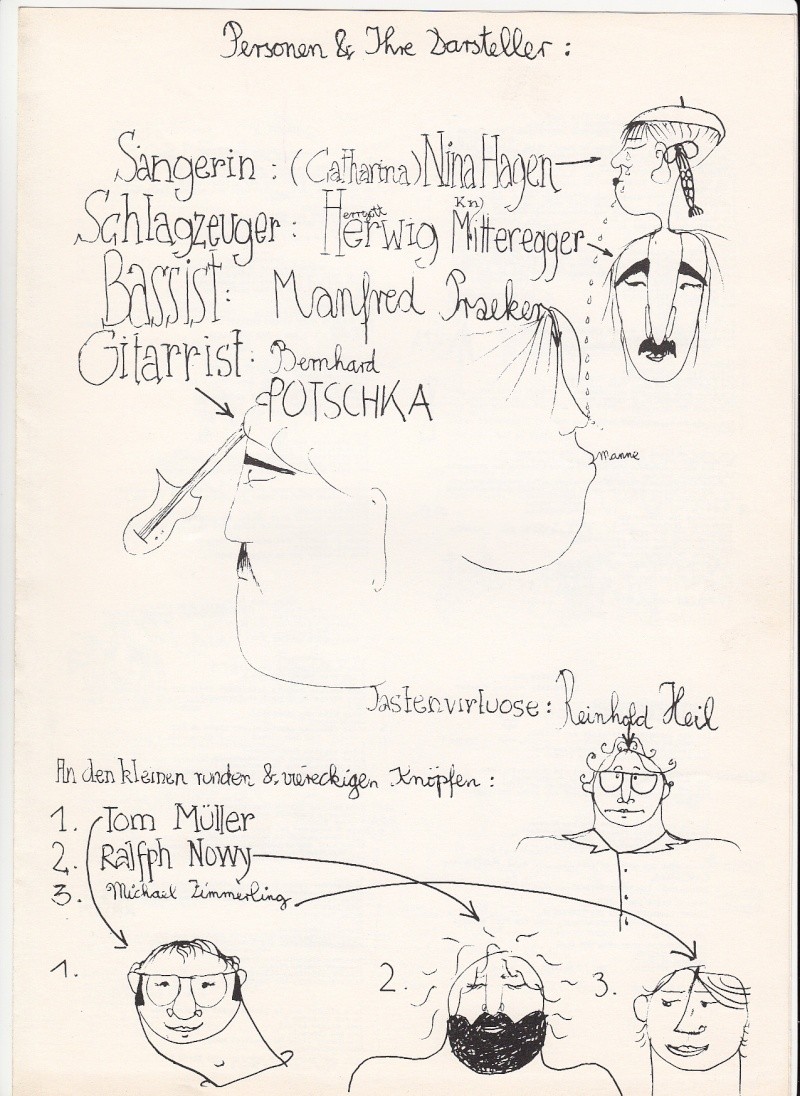 Personen & Ihre Darsteller :
Sängerin : (Catharina) Nina Hagen
Schlagzeuger : Herrgott Herwig Kn) Mitteregger
Bassist : Manfred Praeker
Gitarrist : Bernhard
POTSCHKA
Manne
Tastenvirtuose : Reinhold Heil
An den kleinen runden & viereckigen Knöpfen :
1. Tom Müller
2. Ralfph Nowy
3. Michael Zimmerling
1.
2.
3.